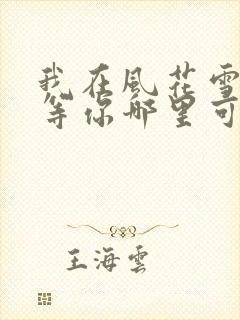 我在風花雪
等你哪里可
王海雲